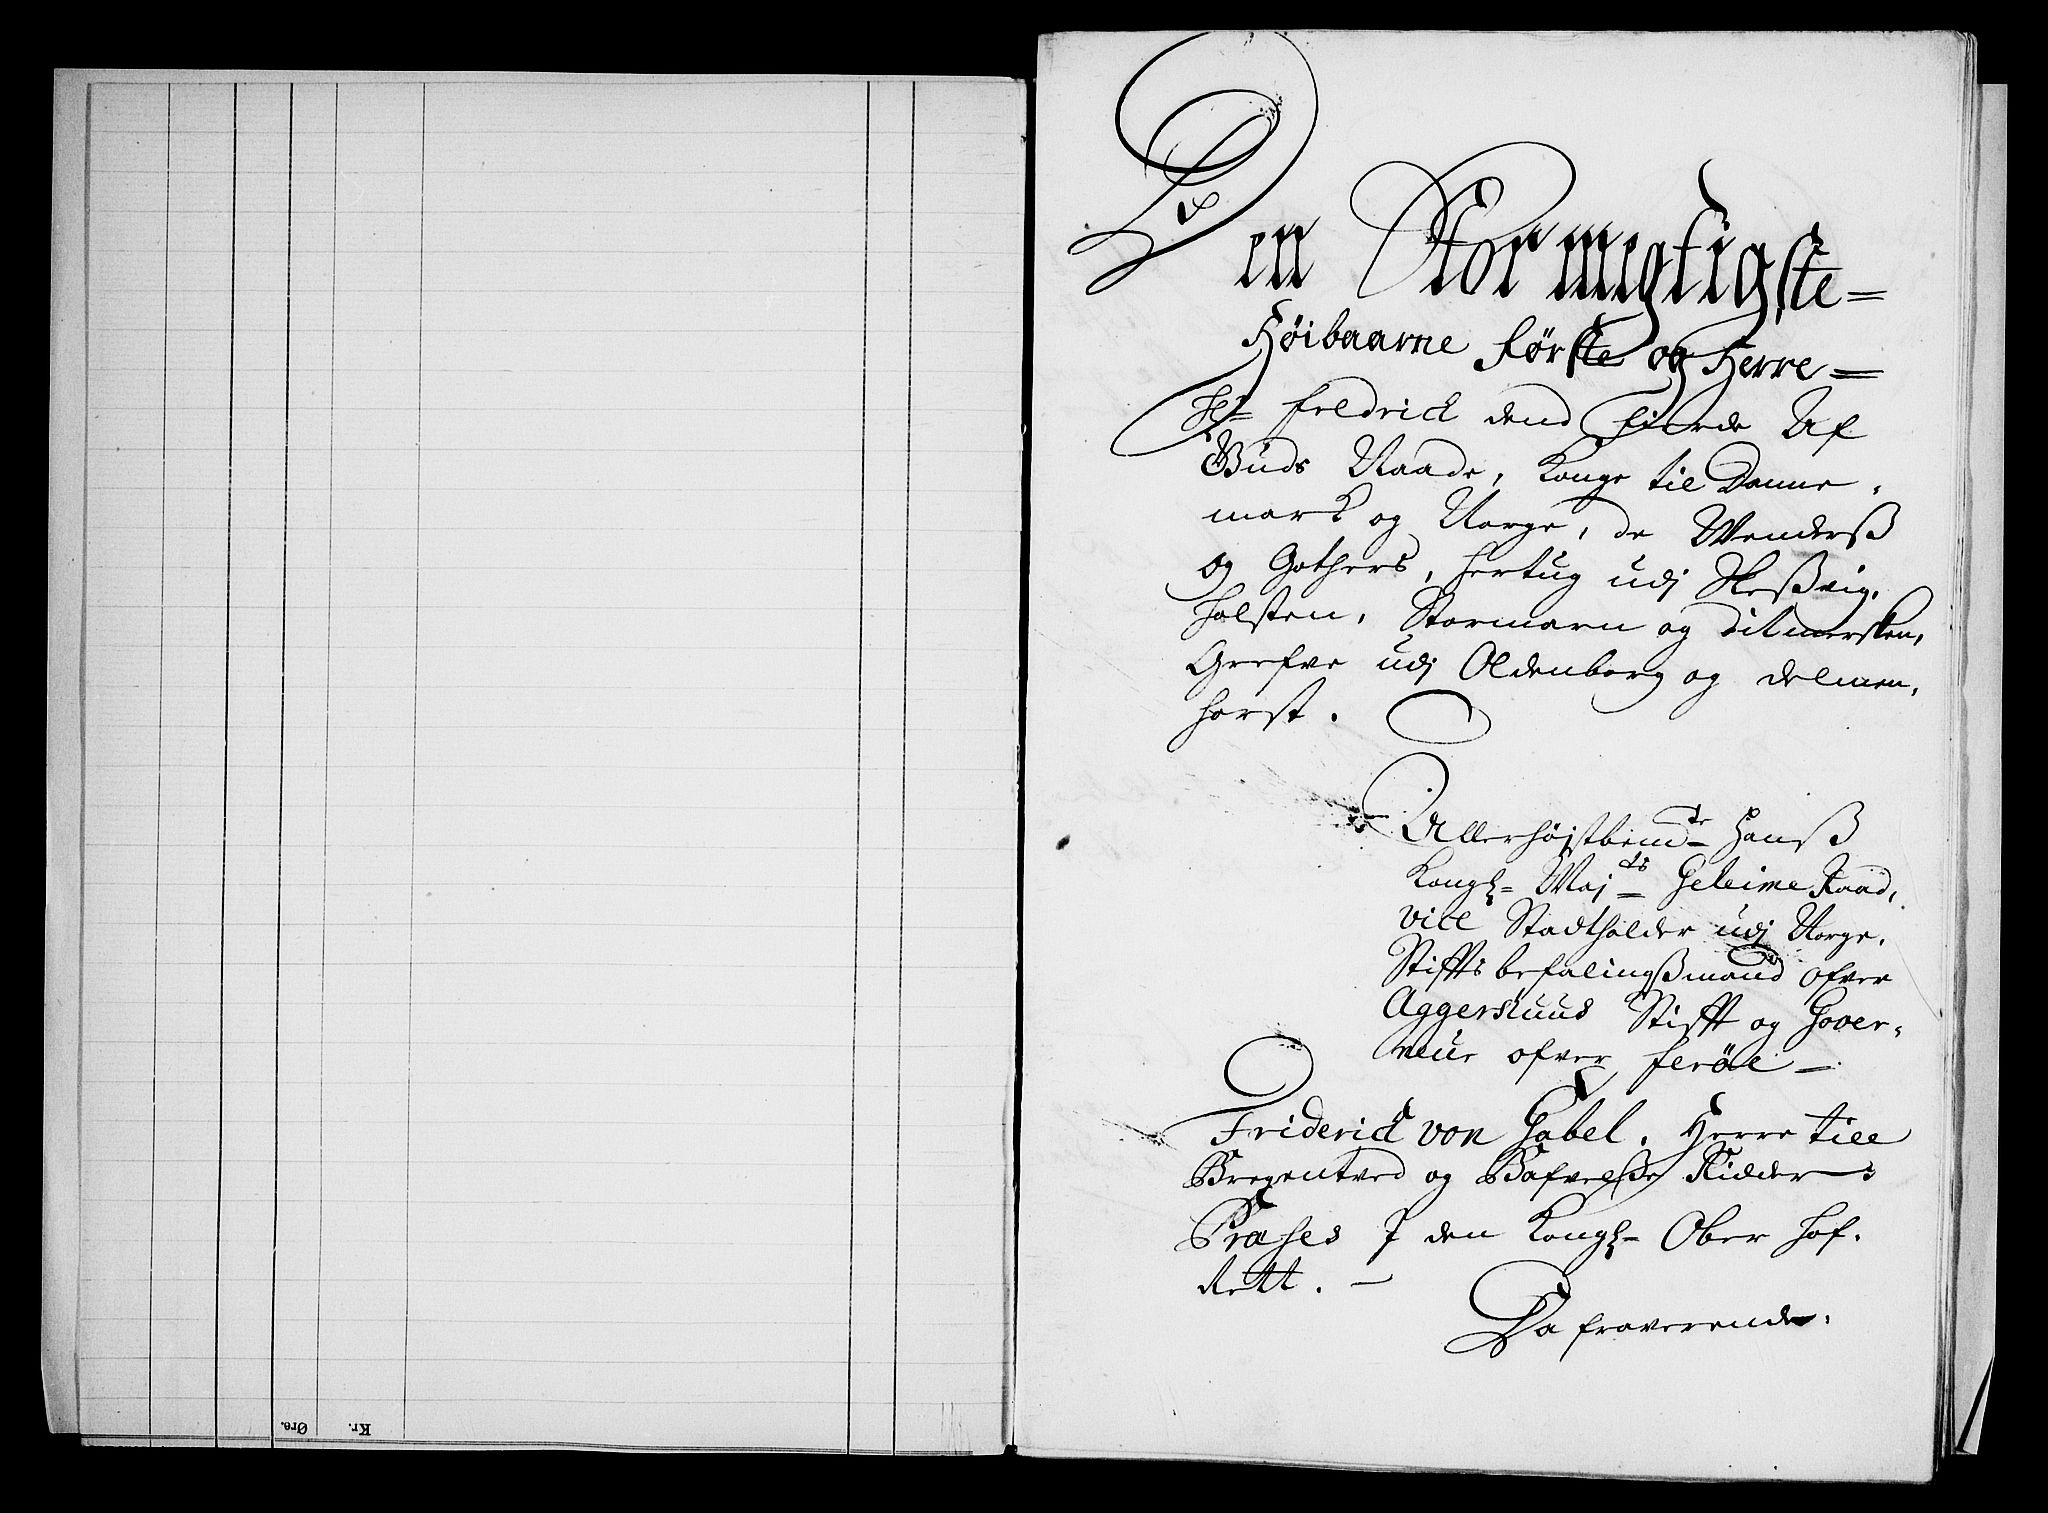 Den Stormegtigste=
Høibaarne Første og Herre=
Hr Fredrick dend fierde Af
Guds Naade, Konge til Danne,
mark og Norge, de Wenderß
og Gothers, Hertug udj Sleßvig,
Holsten, Stormarn og Ditmersken,
Grefve udj Oldenborg og Delmen,
horst.
Allerhøjstbemte Hanß
Kongl- Majts Geheime Raad,
vice Stadtholder udj Norge,
Stiffts befalingßmand ofver
Aggershuus Stifft og Gover,
neur ofver Feröe -
Friderick von Gabel. Herre till
Bregentved og Bafvelße Ridder
Præses I den Kongl- Ober Hof,
Rett. -
Da fraverende,
Kr. Øre.